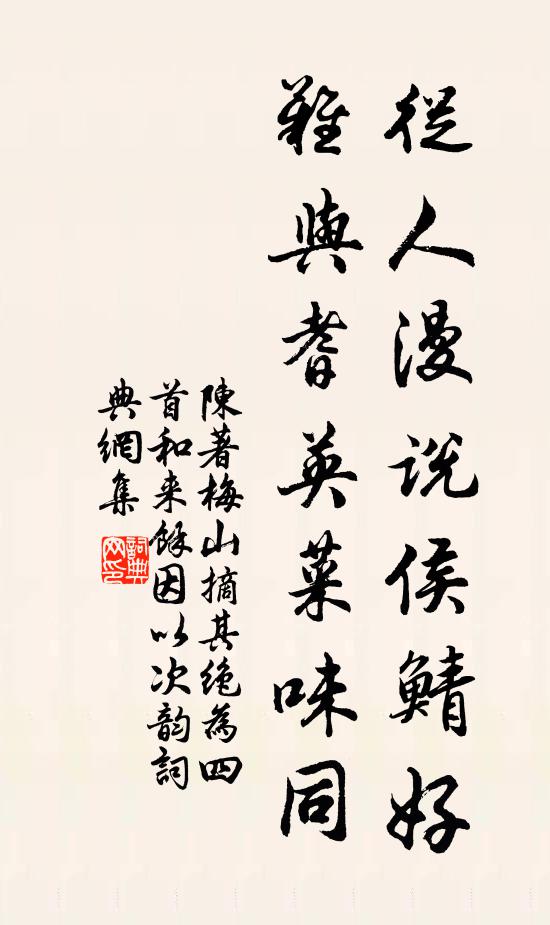 從人漫説侯鯖好
難與耆英菜味同
陳著梅山摘其绝為四
首和来餘因以次韵詞
典網集
詞典網印